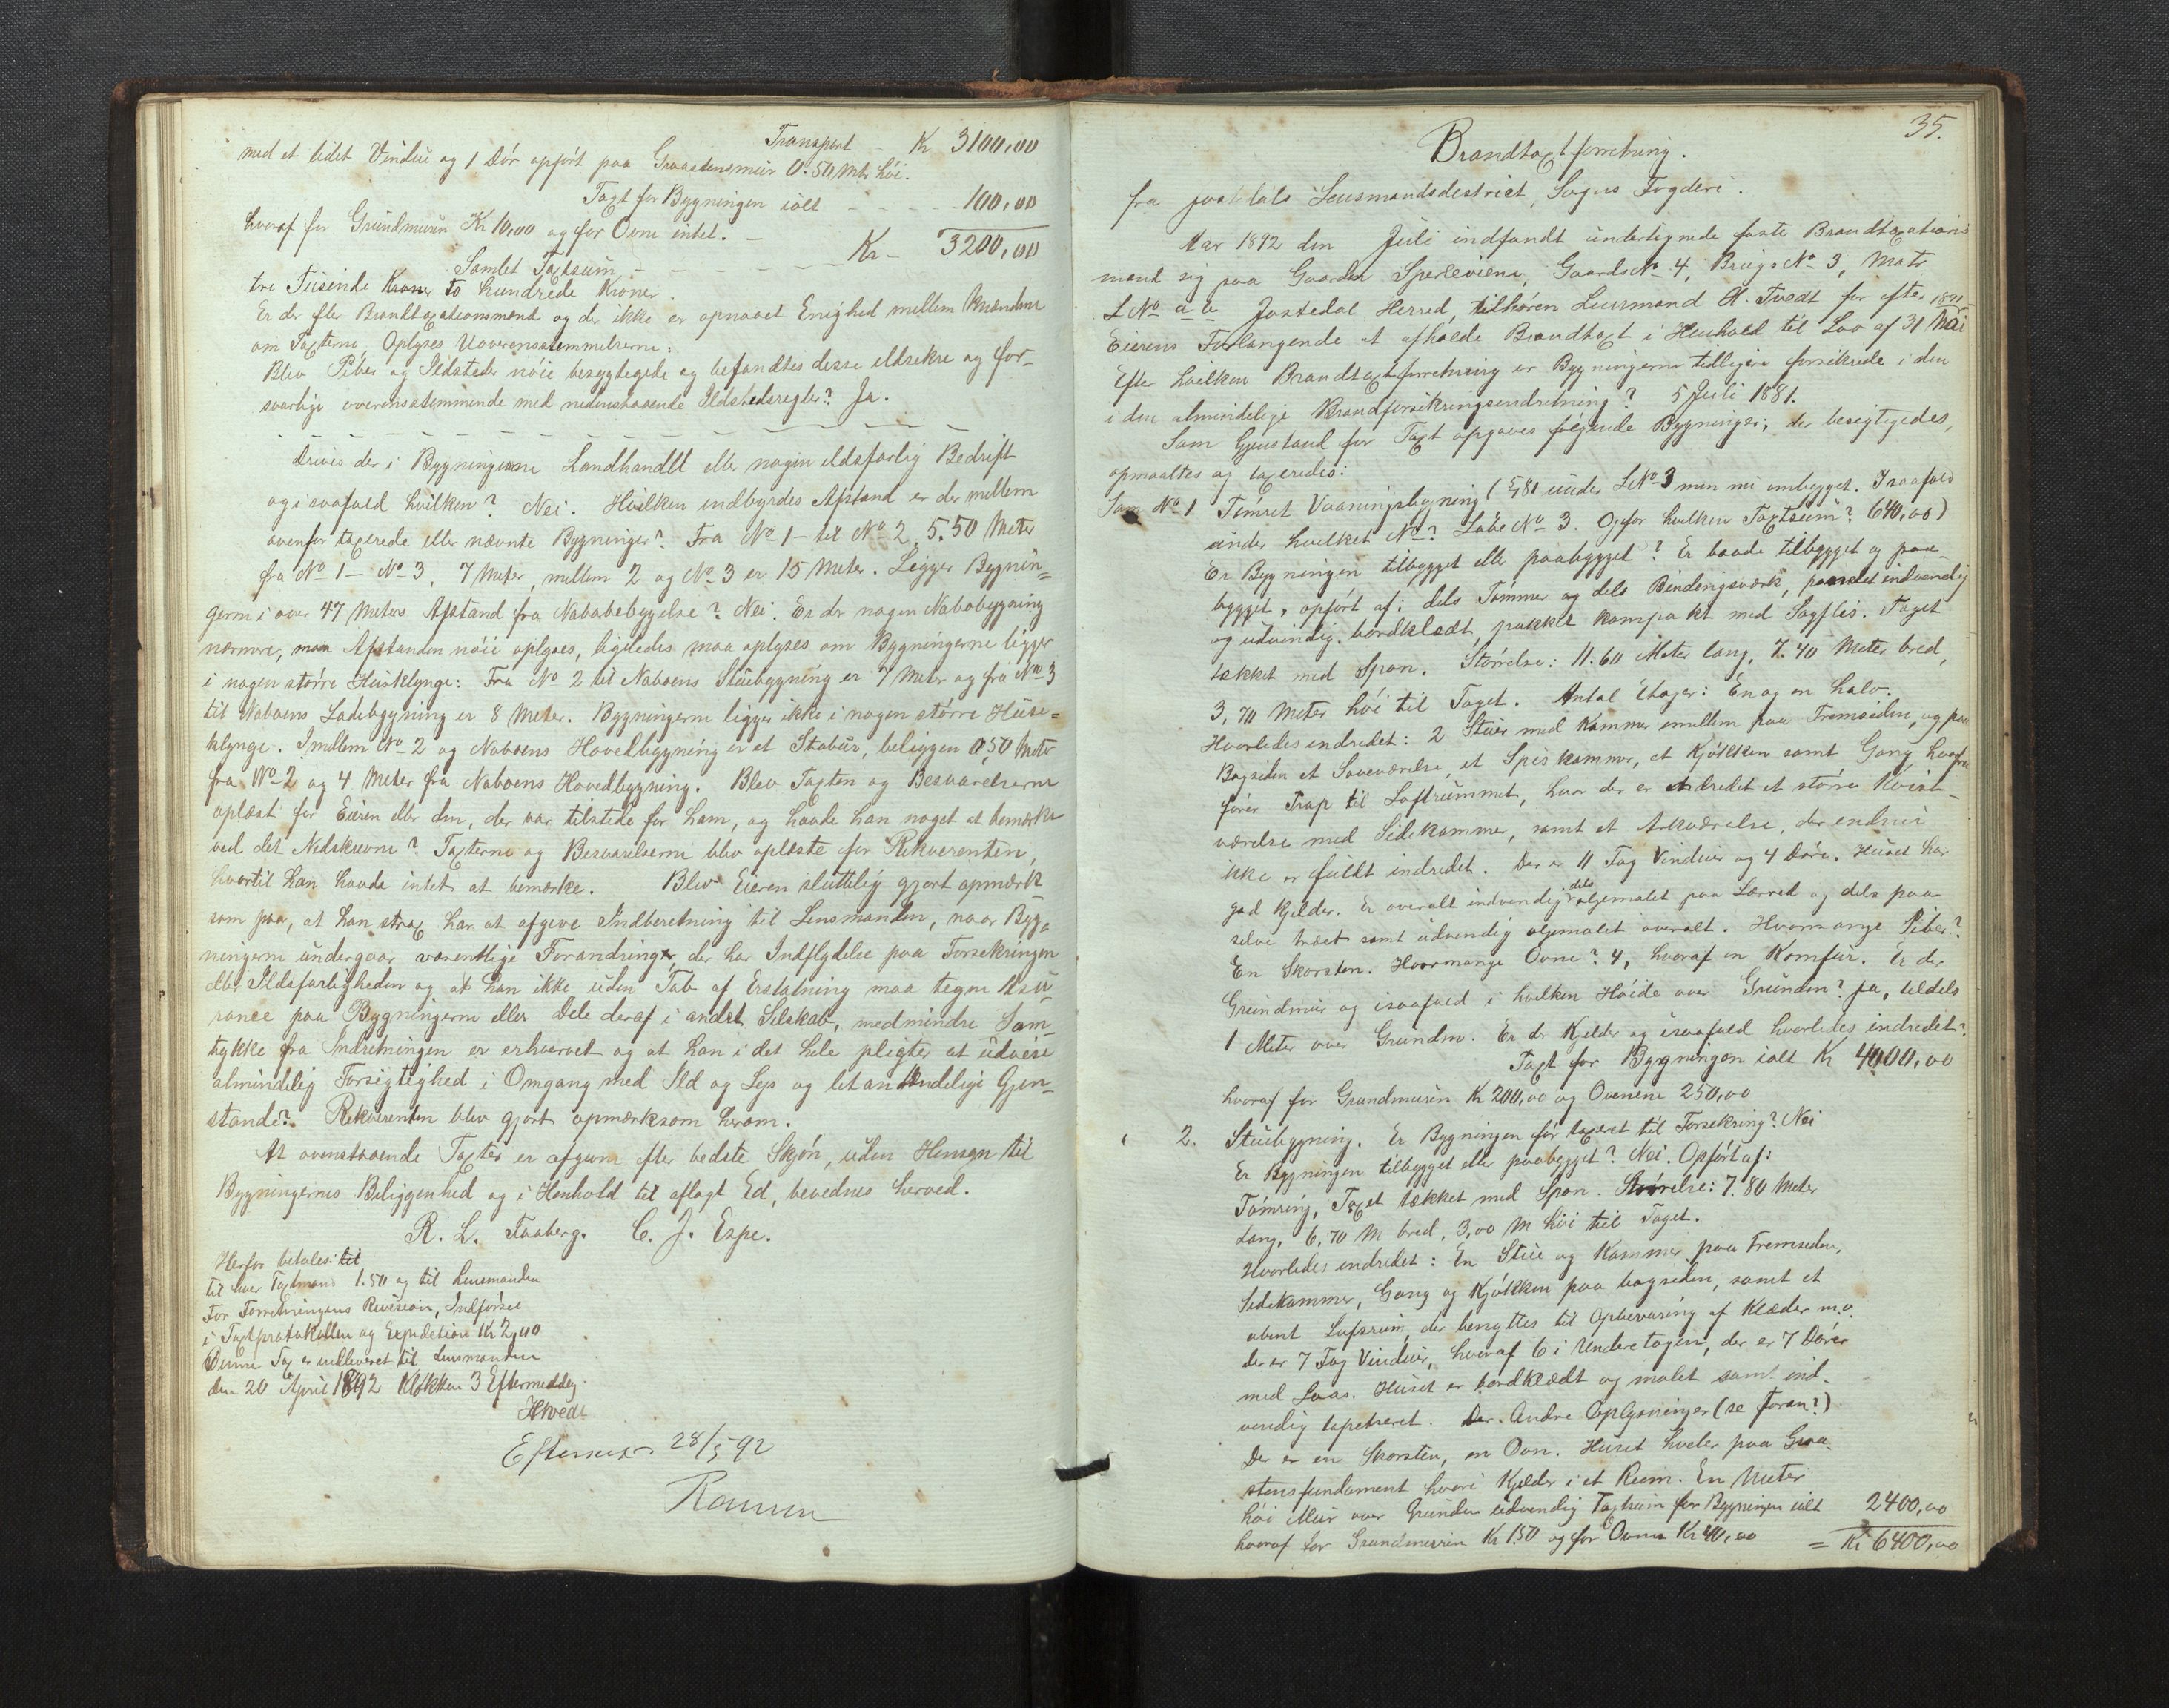 Transport - Kr 3100,00
med et lidet Vindue og 1 Dör opfört paa Graastensmuir 0.50 Mtr höi.
Taxt for Bygningen ialt - - - - 100,00
hvoraf for Grundmuren Kr 10,00 og for Ovne intet. -
Samlet Taxtsum - - - - - - Kr - 3200,00
tre Tusinde Kroner to hundrede Kroner.
Er der flere Brandtaxationsmænd og der ikke er opnaaet Enighed mellem Mændene
om Taxterne. Oplyses Uoverensstemmelserne:
Blev Piber og Ildsteder nöie besigtegede og befandtes disse ildsikre og for-
svarlige overensstemmende med nedenstaaende Ildstedsregler? Ja.
Drives der i Bygningerne Landhandel eller nogen ildsfarlig Bedrift
og i saafald hvilken? Nei. Hvilken indbyrdes Afstand er der mellem
ovenfor taxerede eller nævnte Bygninger? Fra No 1 - til No 2 5.50 Meter
fra No 1 - No 3, 7 Meter, mellem 2 og No 3 er 15 Meter. Ligger Bygnin-
gerne i over 47 Meters Afstand fra Nabobebyggelse? Nei. Er der nogen Nabobygning
nærmere, maa Afstanden nöie oplyses, ligeledes maa oplyses om Bygningerne ligger
i nogen större Husklynge: Fra No 2 til Naboens Stuebygning er 7 Meter og fra No 3
til Naboens Ladebygning er 8 Meter. Bygningerne ligger ikke i nogen större Huse-
klynge. Imellem No 2 og Naboens Hovedbygning er et Stabur, beliggen 0,50 Meter
fra No 2 og 4 Meter fra Naboens Hovedbygning. Blev Taxten og Besvarelserne
oplæst for Eieren eller den, der var tilstede for ham, og havde han noget at bemærke
ved det Nedskrevne? Taxterne og Besvarelserne blev oplæste for Rekvirenten,
hvortil han havde intet at bemærke. Blev Eieren sluttelig gjort opmærk-
som paa, at han strax har at afgive Indberetning til Lensmanden, naar Byg-
ningerne undergaar væsentlige Forandringer, der har Indflydelse paa Forsekringen
eller Ildsfarligheden og at han ikke uden Tab af Erstatning maa tegne Assu-
rance paa Bygningerne eller Dele deraf i andet Selskab, medmindre Sam-
tykke fra Indretningen er erhvervet og at han i det hele pligter at udvise
almindelig Forsigtighed i Omgang med Ild og Lys og let antændelige Gjen-
stande? Rekvirenten blev gjort opmærksom herom.
At ovenstaaende Taxter er afgivne efter bedste Skjön, uden Hensyn til
Bygningernes Beliggenhed og i Henhold til aflagt Ed, bevidnes herved.
R. L. Faaberg. C. J. Espe.
Herfor betales: til
til hver Taxtmand 1.50 og til Lensmanden
For Forretningens Revision, Indförsel
i Taxtprotokollen og Expedition Kr 2,40
Denne Tax er udleveret til Lensmanden
den 20 April 1892 Klokken 3 Eftermiddag.
HTvedt
Efterseet 28/5 92
35.
Brandtaxtforretning.
fra Jostedals Lensmandsdestrict, Sogns Fogderi.
Aar 1892 den Juli indfandt undertegnede faste Brandtaxations
mænd sig paa Gaarden Sperleviene, Gaards No 4, Brugs No 3, Matr
L No Jostedal Herred, tilhören Lensmand H. Tvedt for efter 1891
Eierens Forlangende at afholde Brandtaxt i Henhold til Lov af 31 Mai
Efter hvilken Brandtaxtforretning er Bygningerne tidligere forsikrede i den
i den almindelige Brandforsikringsindretning? 5 Juli 1881.
Som Gjenstand for Taxt opgaves fölgende Bygninger, der besigtigedes,
opmaaltes og taxeredes:
Som No 1 Tömret Vaaningsbygning (5/7 81 under L No 3 men nu ombygget. Isaafald
under hvilket No? Löbe No 3. Og for hvilken Taxtsum? 640,00)
Er Bygningen tilbygget eller paabygget? Er baade tilbygget og paa-
bygget, opfört af: dels Tömmer og dels Bindingsværk, panelet indvendig
og udvendig bordklædt, pakket kompakt med Sagflis. Taget
tækket med Spon. Störrelse: 11.60 Meter lang, 7.40 Meter bred,
3,70 Meter höi til Taget. Antal Etager: En og en halv.
Hvorledes indredet: 2 Stuer med Kammer imellem paa Fremsiden, og paa
Bagsiden et Soveværelse, et Spiskammer, et Kjökken samt Gang hvorfra
förer Trap til Loftrummet, hvor der er indredet et större Kvist-
værelse med Sidekammer, samt et Arkværelse, der endnu
ikke er fuldt indredet. Der er 11 Fag Vinduer og 4 Döre. Huset har
god Kjelder. Er overalt indvendig dels oljemalet paa Lærred og dels paa
selve træet samt udvendig oljemalet overalt. Hvormange Piber?
En Skorsten. Hvormange Ovne? 4, hvoraf en Komfur. Er der
Grundmur og isaafald i hvilken Höide over Grunden? Ja, tildels
1 Meter over Grunden. Er der Kjelder og isaafald hvorledes indredet?
Taxt for Bygningen ialt Kr 4000,00
hvoraf for Grundmuren Kr 200,00 og Ovnene 250,00
" 2. Stuebygning. Er Bygningen för taxeret til Forsekring? Nei
Er Bygningen tilbygget eller paabygget? Nei. Opfört af:
Tömring, Taget tækket med Spon. Störrelse: 7.80 Meter
Lang, 6,70 M bred, 3,00 M höi til Taget.
Hvorledes indredet: En Stue og Kammer paa Fremsiden,
Sidekammer, Gang og Kjökken paa bagsiden, samt et
abent Loftsrum, der benyttes til Opbevaring af Klæder m.v.
der er 7 Fag Vinduer, hvoraf 6 i Underetagen, der er 7 Dörer
med Laas. Huset er bordklædt og malet samt ind-
vendig tapetseret. Der. Andre Oplysninger (se foran?)
Der er en Skorsten, en Ovn. Huset hviler paa Graa-
stensfundament hvori Kjelder i et Rum. En Meter
höi Mur over Grunden udvendig Taxtsum for Bygningen ialt 2400,00
hvoraf for Grundmuren Kr 150 og for Ovne Kr 40,00 = Kr 6400,00